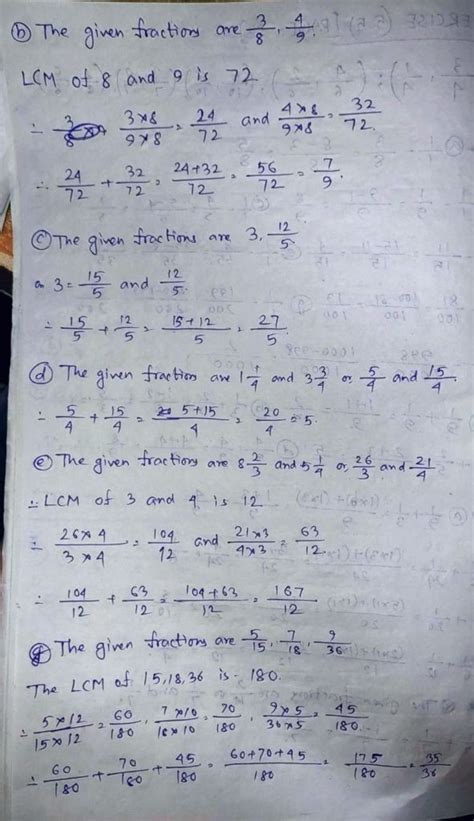 (b) The given fractions are 3/8, 4/9.
LCM of 8 and 9 is 72
∴ 3×8/9×8 = 24/72 and 4×8/9×8 = 32/72.
∴ 24/72 + 32/72 = 24+32/72 = 56/72 = 7/9.
(c) The given fractions are 3, 12/5.
3 = 15/5 and 12/5.
∴ 15/5 + 12/5 = 15+12/5 = 27/5.
(d) The given fraction are 1 1/4 and 3 3/4 or, 5/4 and 15/4.
∴ 5/4 + 15/4 = 5+15/4 = 20/4 = 5.
(e) The given fractions are 8 2/3 and 5 1/4 or, 26/3 and 21/4
∴ LCM of 3 and 4 is 12
∴ 26×4/3×4 = 104/12 and 21×3/4×3 = 63/12
∴ 104/12 + 63/12 = 104+63/12 = 167/12
The given fractions are 5/15, 7/18, 9/36
The LCM of 15, 18, 36 is 180.
∴ 5×12/15×12 = 60/180, 7×10/18×10 = 70/180, 9×5/36×5 = 45/180.
∴ 60/180 + 70/180 + 45/180 = 60+70+45/180 = 175/180 = 35/36